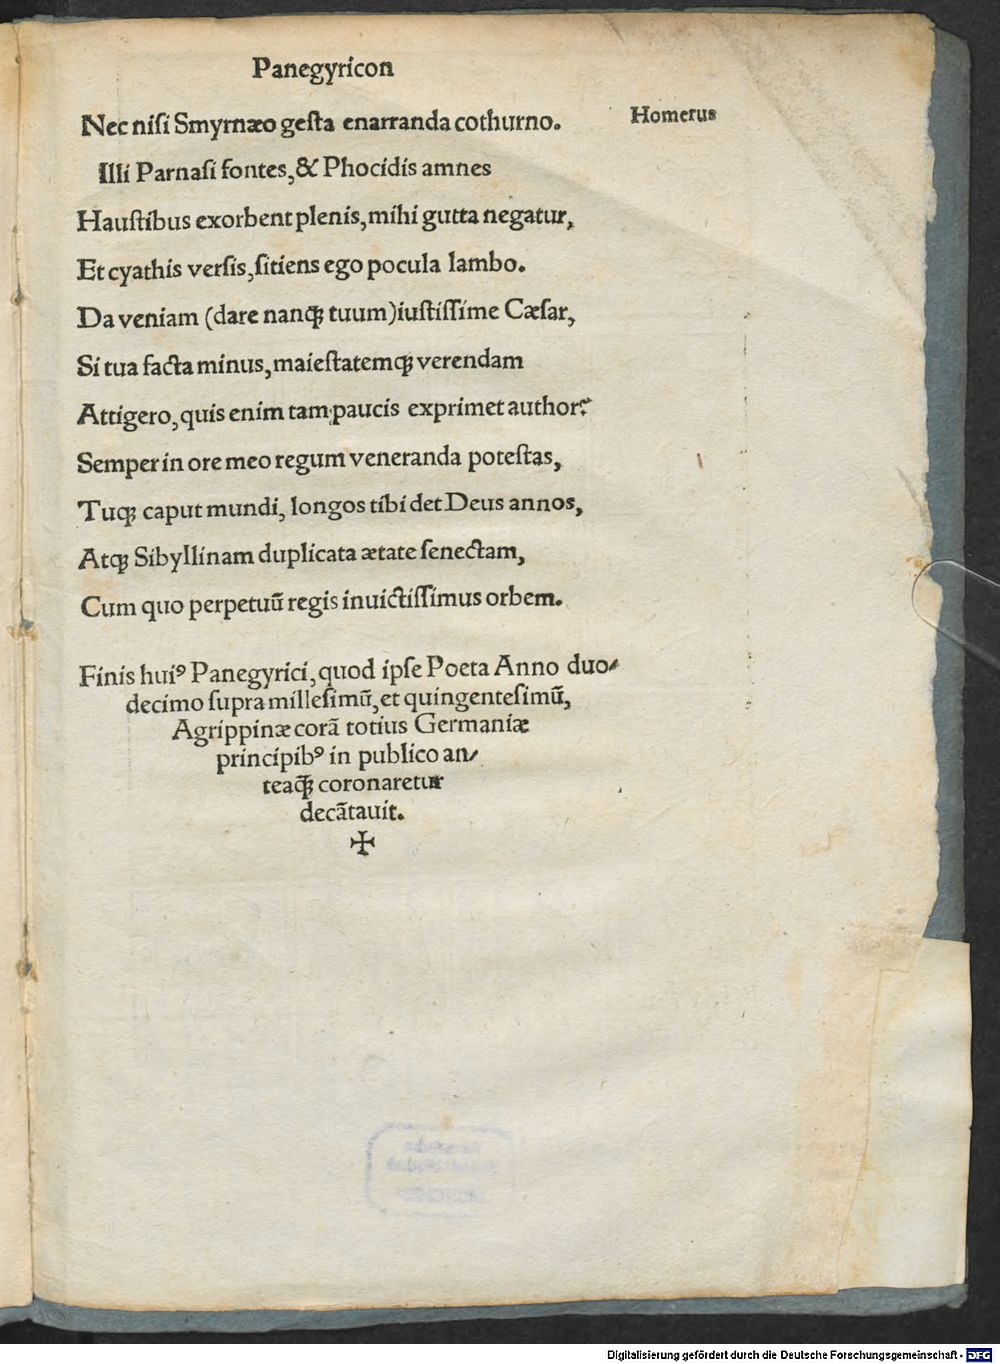 Panegyricon
Nec nisi Smyrnæo gesta enarranda cothurno. Homerus
Illi Parnasi fontes, & Phocidis amnes
Haustibus exorbent plenis, mihi gutta negatur,
Et cyathis versis, sitiens ego pocula lambo.
Da veniam (dare nanq; tuum) iustissime Cæsar,
Si tua facta minus, maiestatemq; verendam
Attigero, quis enim tam paucis exprimet author?
Semper in ore meo regum veneranda potestas,
Tuq; caput mundi, longos tibi det Deus annos,
Atq; Sibyllinam duplicata ætate senectam,
Cum quo perpetuũ regis inuictissimus orbem.
Finis huiꝰ Panegyrici, quod ipse Poeta Anno duo/
decimo supra millesimũ, et quingentesimũ,
Agrippinæ corã totius Germaniæ
principibꝰ in publico an/
teaq̃; coronaretur
decãtauit.
✠
Digitalisierung gefördert durch die Deutsche Forschungsgemeinschaft - DFG